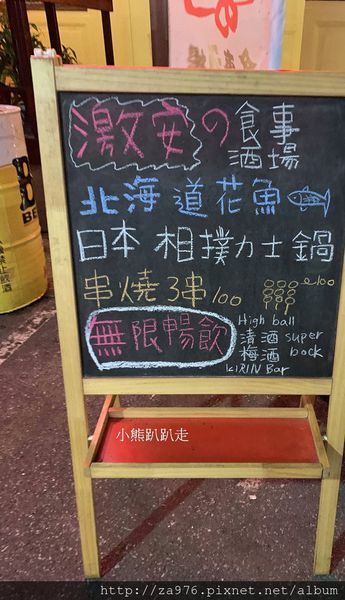 激安の食事
酒場
北海道花魚
日本相撲力士鍋
串燒3串100
e100
無限暢飲
High ball
清酒 super
梅酒 bock
KIRIN Bar
小熊趴趴走
http://za976.pixnet.net/album